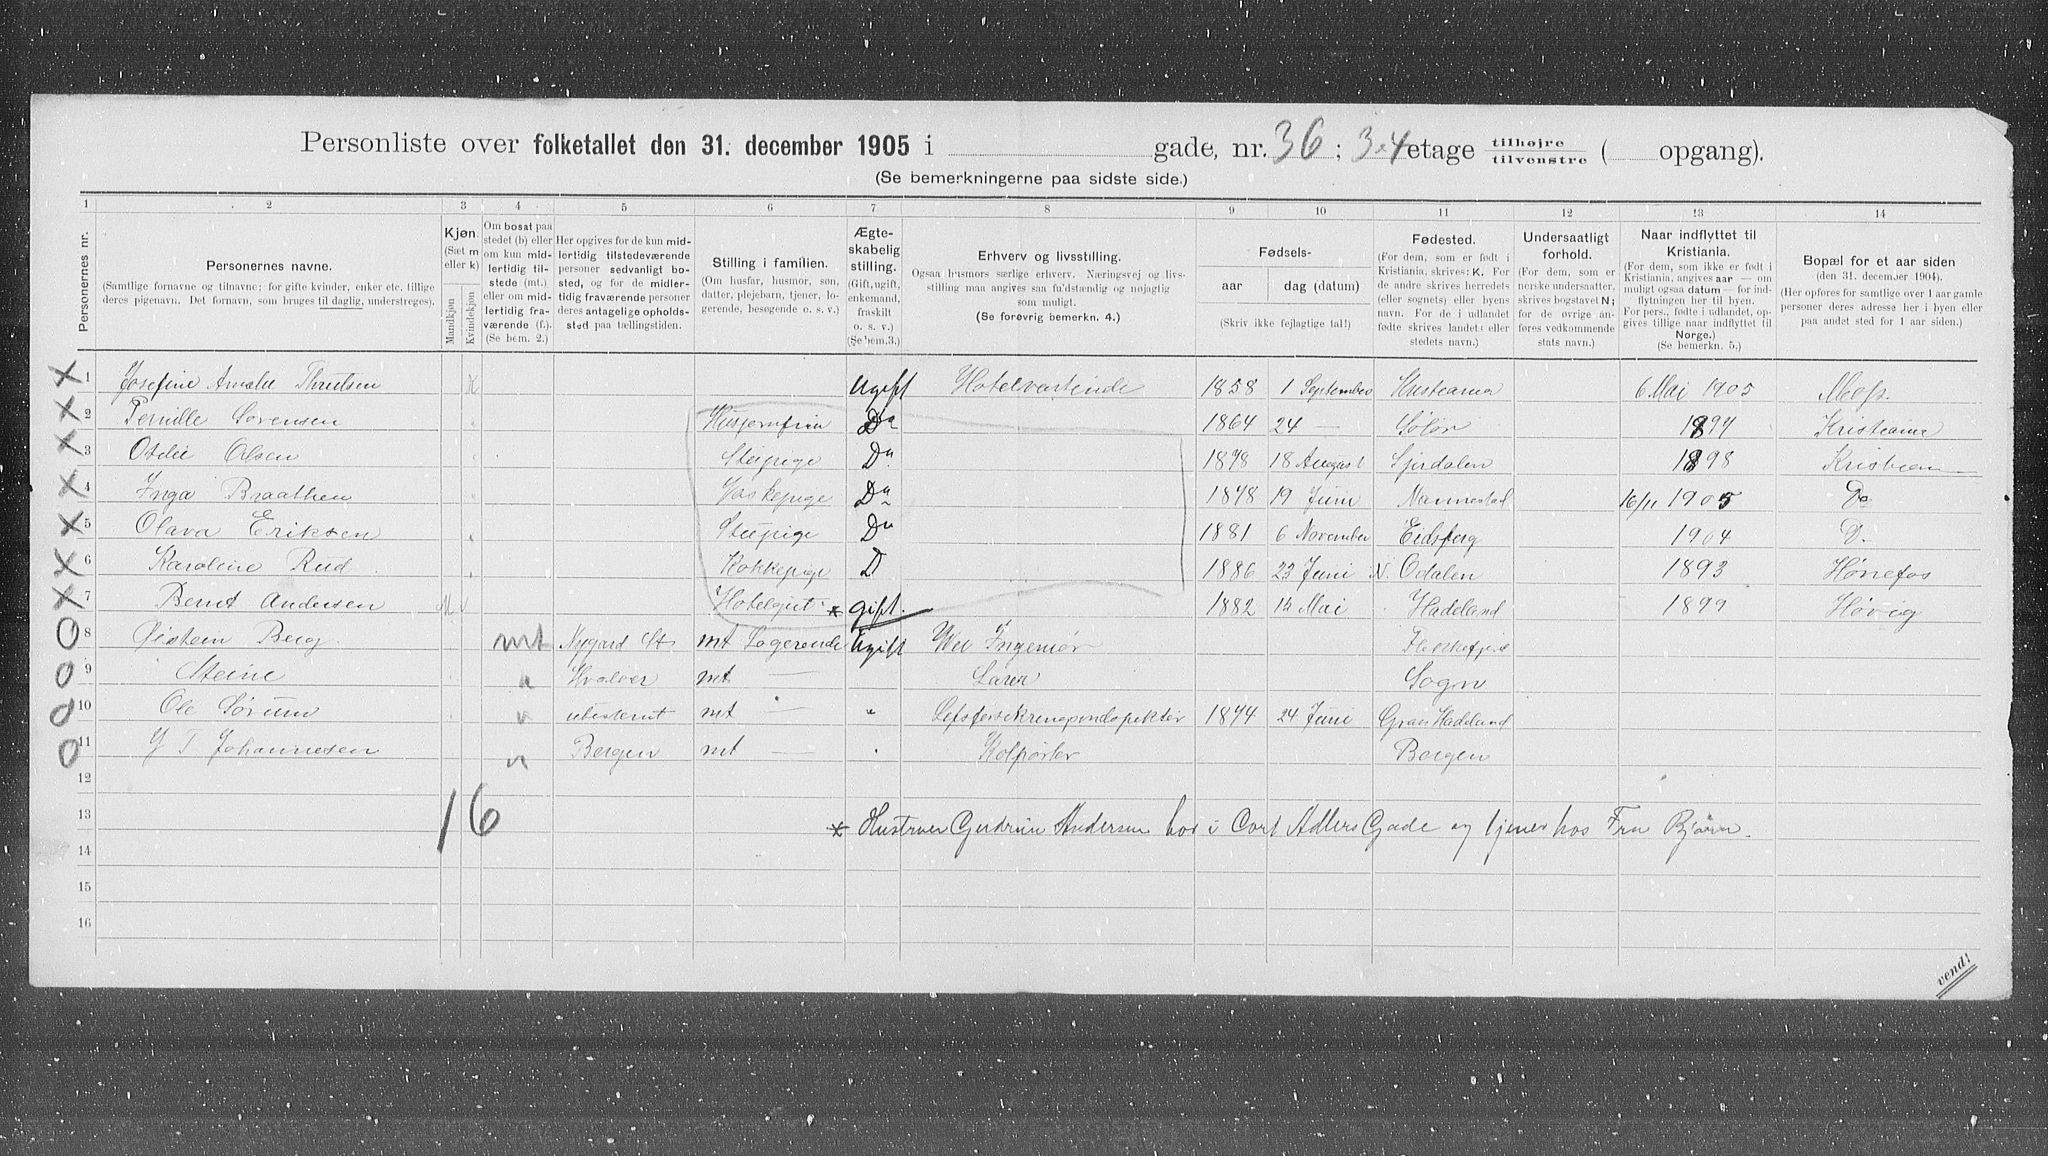 Personliste over folketallet den 31. december 1905 i gade, nr. 36; 3-4 etage tilhøjre tilvenstre ( opgang).
(Se bemerkningerne paa sidste side.)
1 2 3 4 5 6 7 8 9 10 11 12 13 14
Personernes nr.
Personernes navne.
(Samtlige fornavne og tilnavne; for gifte kvinder, enker etc. tillige deres pigenavn. Det fornavn, som bruges til daglig, understreges).
Kjøn.
(Sæt m eller k)
Mandkjøn Kvindekjøn
Om bosat paa stedet (b) eller om kun midlertidig tilstede (mt.) eller om midlertidig fraværende (f.). (Se bem. 2.)
Her opgives for de kun midlertidig tilstedeværende personer sedvanlig bosted, og for de midlertidig fraværende personer deres antagelige opholdssted paa tællingstiden.
Stilling i familien.
(Om husfar, husmor, søn, datter, plejebarn, tjener, logerende, besøgende o. s. v.)
Ægteskabelig stilling.
(Gift, ugift, enkemand, fraskilt o. s. v.) (Se bem.3.)
Erhverv og livsstilling.
Ogsaa husmors særlige erhverv. Næringsvej og livsstilling maa angives saa fuldstændig og nøjagtig som muligt.
(Se forøvrig bemerkn. 4.)
Fødsels-
aar dag (datum)
(Skriv ikke fejlagtige tal!)
Fødested.
(For dem, som er født i Kristiania, skrives: K. For de andre skrives herredets (eller sognets) eller byens navn. For de i udlandet fødte skrives landets eller stedets navn.)
Undersaatligt forhold.
(For dem, som er norske undersaatter, skrives bogstavet N; for de øvrige anføres vedkommende stats navn.)
Naar indflyttet til Kristiania.
(For dem, som ikke er født i Kristiania, angives aar — om muligt ogsaa datum — for indflytningen her til byen. For pers., fødte i udlandet, opgives tillige naar indflyttet til Norge.)
(Se bemerkn. 5.)
Bopæl for et aar siden
(den 31. december 1904).
(Her opføres for samtlige over 1 aar gamle personer deres adresse her i byen eller paa andet sted for 1 aar siden.)
X 1 Josefine Amalie K Ugift Hotelvertinde 1858 1 September Kristiania 6 Mai 1905 Moss.
X 2 Pernille Sørensen Husjomfru Do 1864 24 — Solør 1897 Kristiania
X 3 Otilie Olsen Stuepige Do 1878 18 August 1898 Kristian
X 4 Inga Braathen Vaskepige Do 1878 19 Juni Nannestad 16/11 1905 Do
X 5 Olava Eriksen Stuepige Do 1881 6 November Eidsberg 1904 D.
X 6 Karoline Rud Kokkepige D 1886 23 Juni N. Odalen 1893 Hønefos
X 7 Bernt Andersen M Hotelgut * gift. 1882 Mai Hadeland 1899 Høvig
O 8 Øistein Berg. mt Nygard St mt Logerende Ugift Ingeniør Flekkefjord
O 9 Steine " Hvaler mt — Lærer Sogn
O 10 Ole Sørum " ubestemt mt — " Lifsforsekringsinspektør 1874 24 Juni Gran Hadeland
O 11 J T Johannesen " Bergen mt — Kolportør Bergen
12
13 16 * Hustruen Gudrun Andersen bor i Cort Adlers Gade og tjener hos Fru Bjørn.
14
15
16
vend!